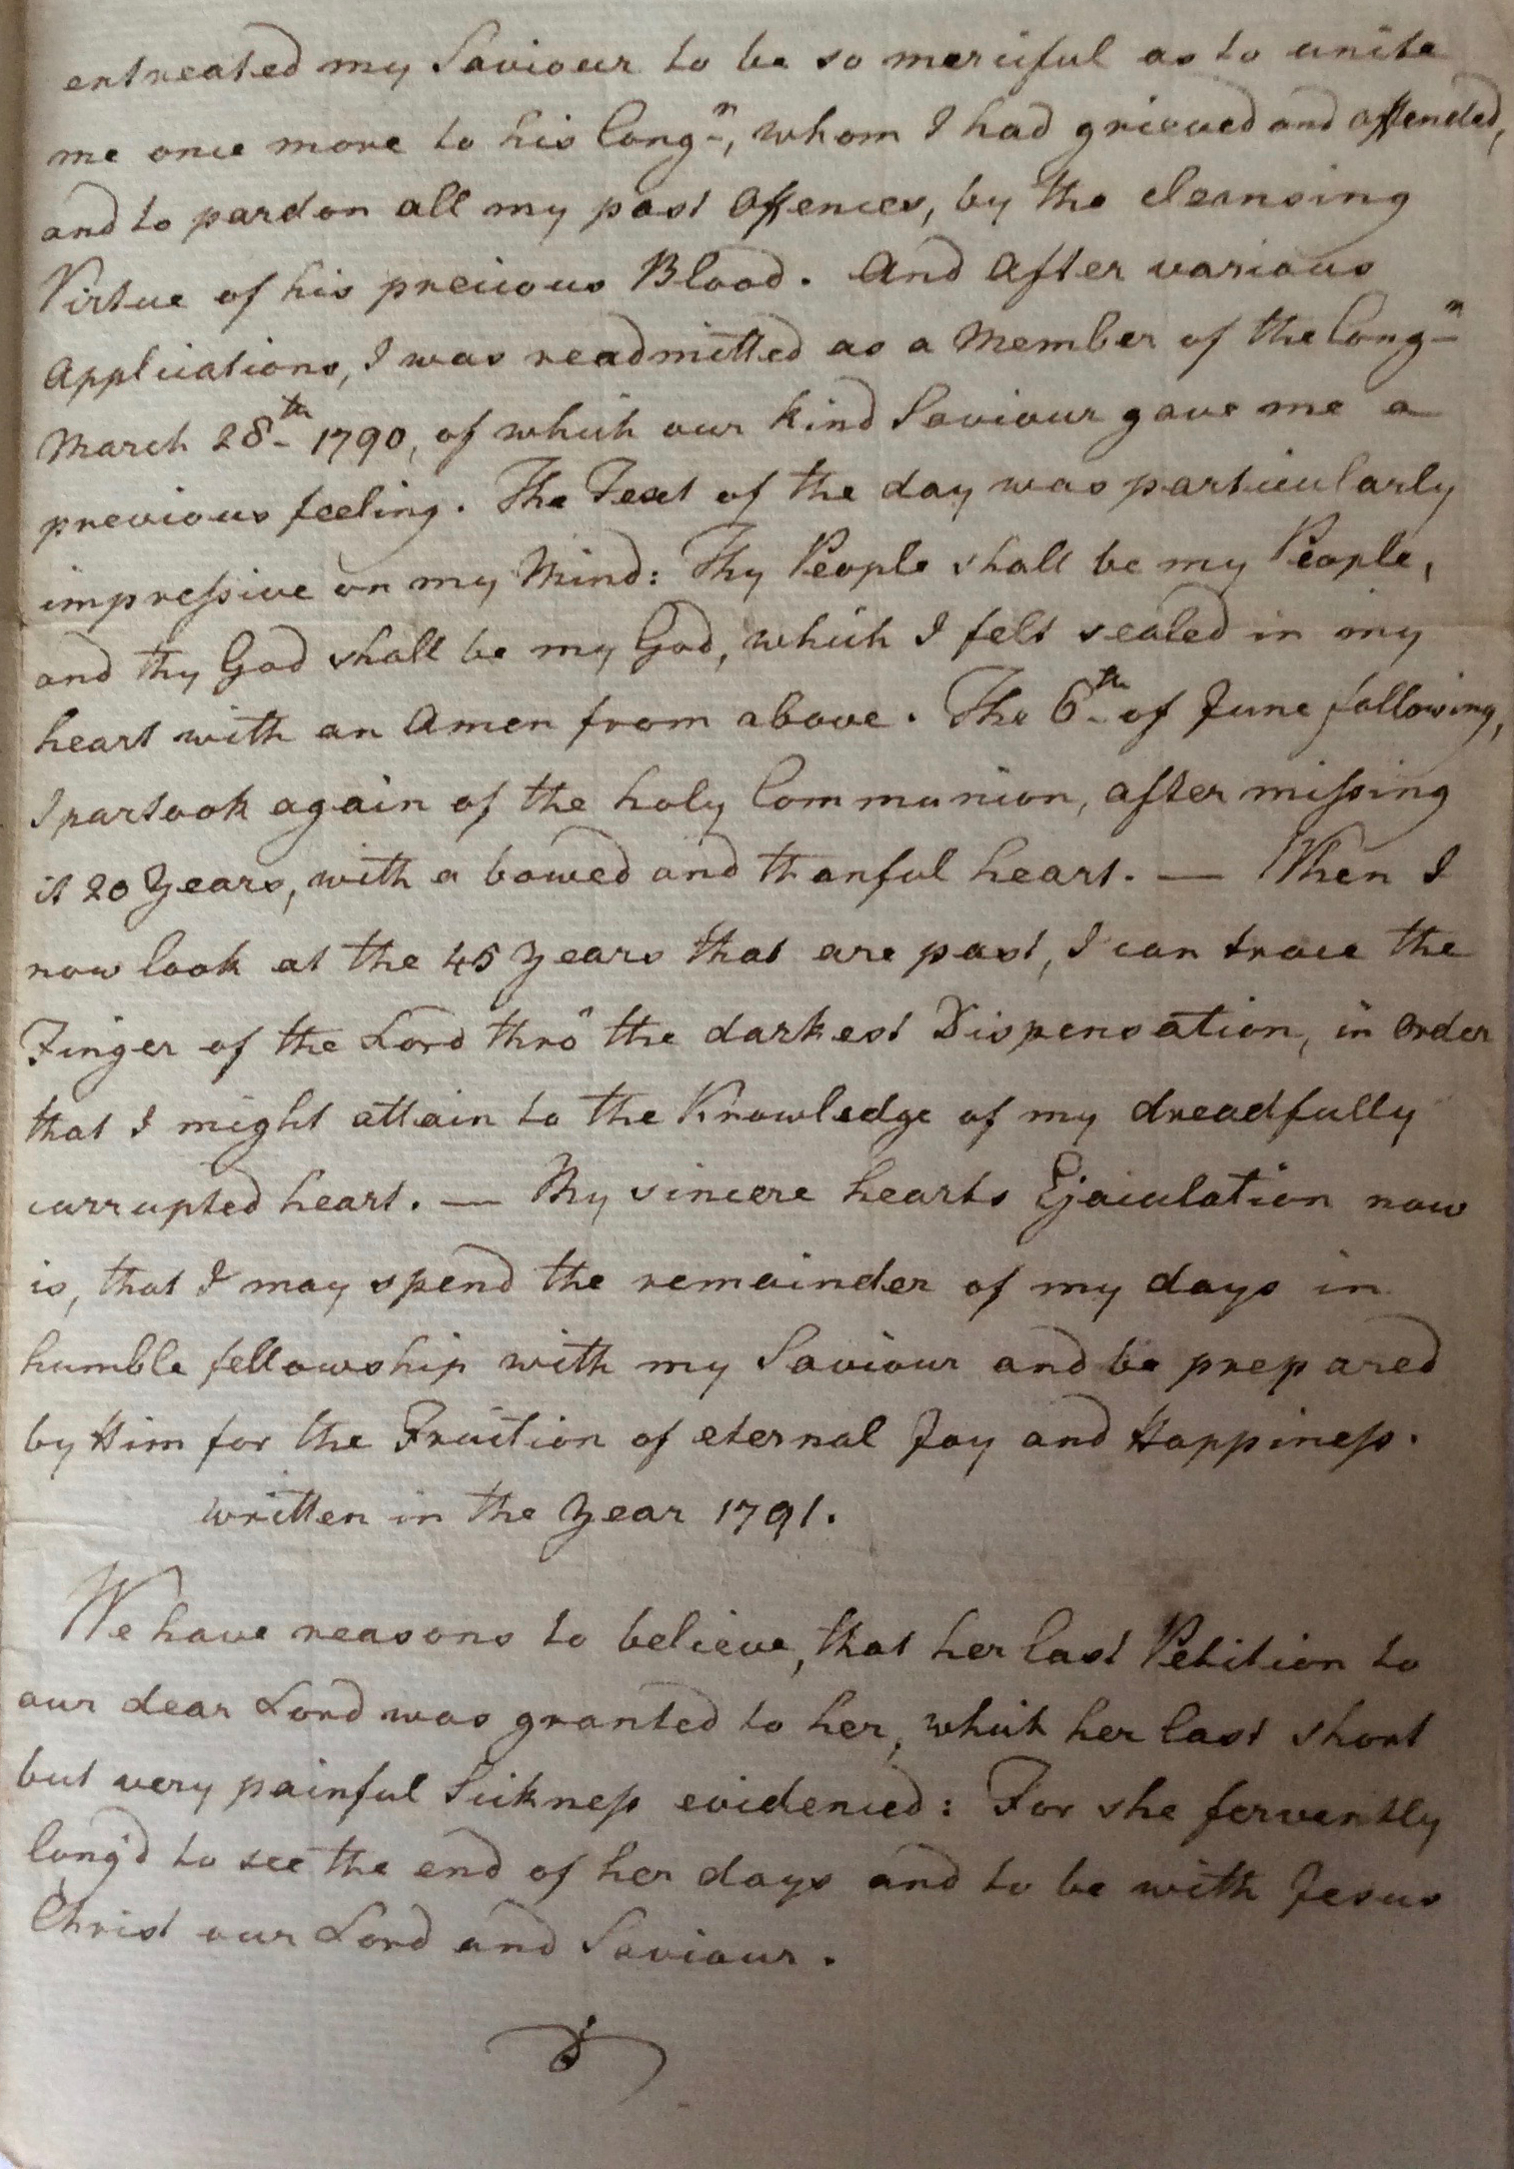 entreated my Saviour to be so merciful as to unite
me once more to his Congⁿ, whom I had grieved and offended,
and to pardon all my past Offences, by the cleansing
Virtue of his precious Blood. And after various
Applications, I was readmitted as a Member of the Congⁿ
March 28th 1790, of which our kind Saviour gave me a
previous feeling. The Text of the day was particularly
impreſsive on my Mind: Thy People shall be my People,
and thy God shall be my God, which I felt sealed in my
heart with an Amen from above. The 6th of June following,
I partook again of the holy Communion, after miſsing
it 20 Years, with a bowed and thanful heart. — When I
now look at the 45 Years that are past, I can trace the
Finger of the Lord thro' the darkest Dispensation, in Order
that I might attain to the Knowledge of my dreadfully
corrupted heart. — My sincere hearts Ejaculation now
is, that I may spend the remainder of my days in
humble fellowship with my Saviour and be prepared
by Him for the Fruition of eternal Joy and Happineſs.
written in the Year 1791.
We have reasons to believe, that her last Petition to
our dear Lord was granted to her, which her last short
but very painful Sickneſs evidenced: For she fervently
long'd to see the end of her days and to be with Jesus
Christ our Lord and Saviour.